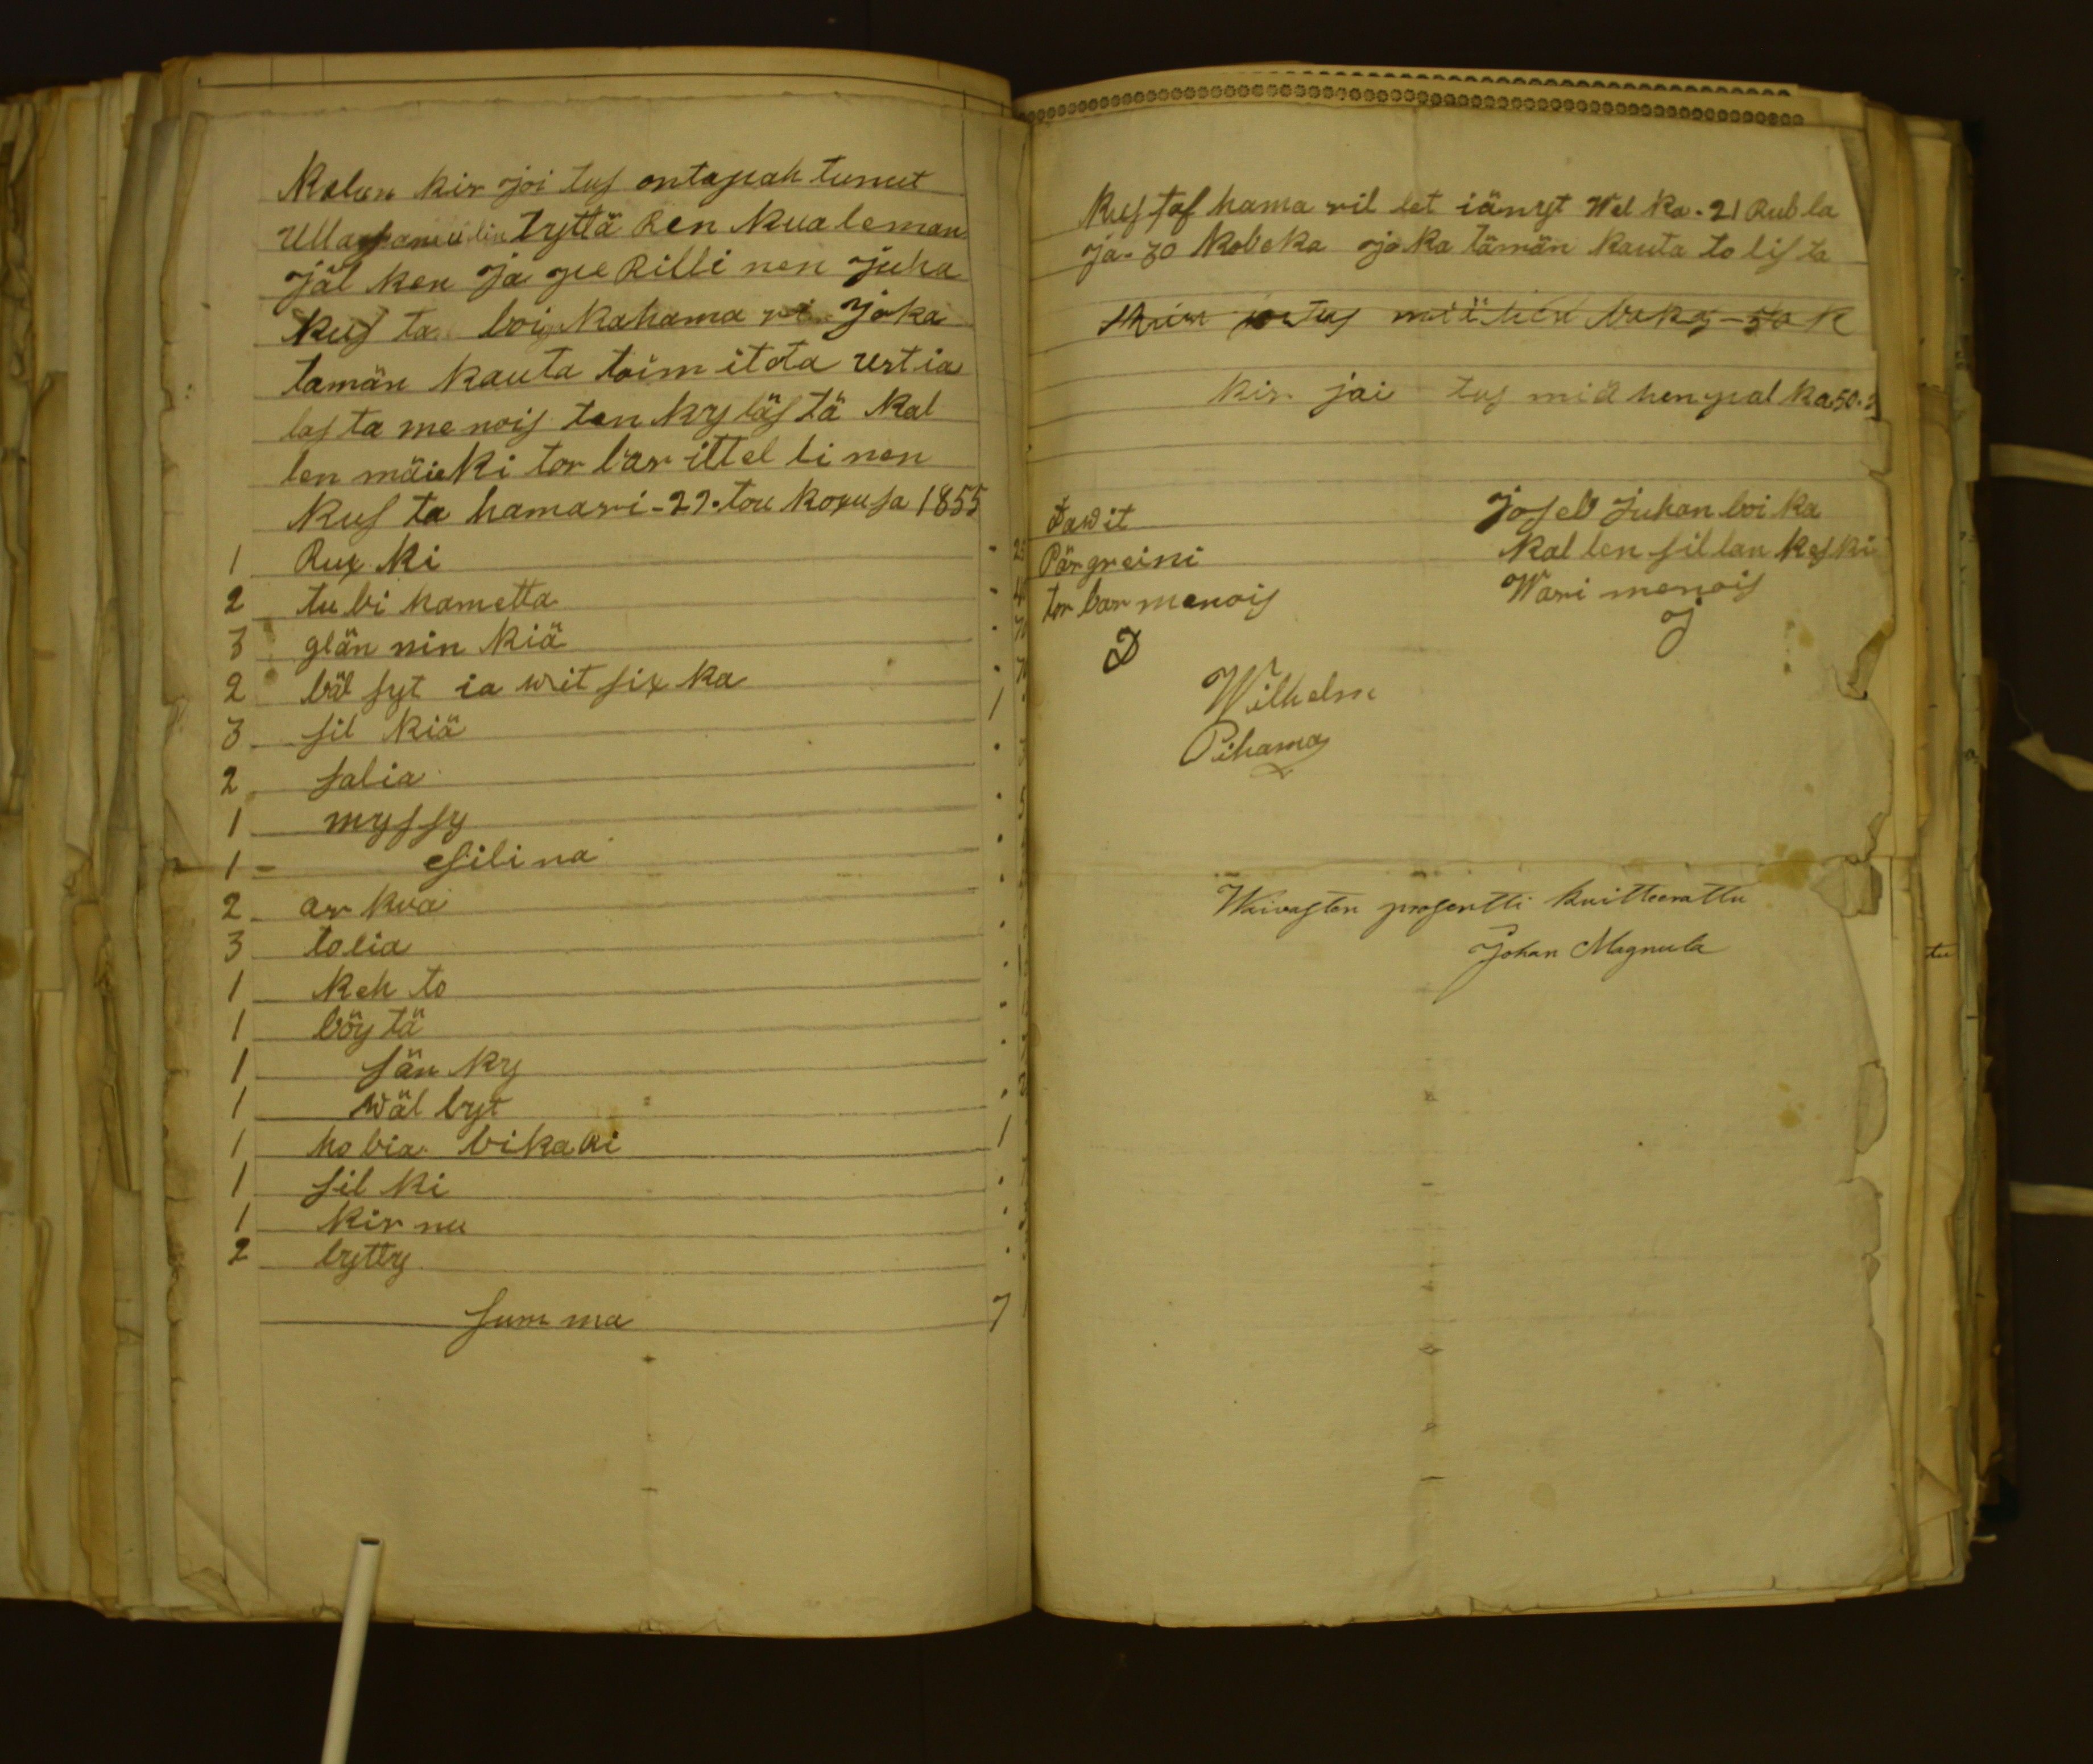 Kalun kir joi tus ontapah tunut
Ulla tyttä Ren kua leman
jäl ken ja pe Rilli nen juha
kus ta boi ka hama ri joka
tamän kauta toim itota Ust ia
las ta me nois ten ky läs tä Kal
len mäuki tor bar ittel li nen
kus ta hamari - 29. tou kokusa 1855
1 Rux ki
2 tu bi hametta
3 glän nin kiä
2 bäl syt ia wit six ka
3 sil kiä
2 salia
1 mys sy
1 esili na
2 ar kua
3 tolia
1 keh to
1 böy tä
1 sän ky
1 wäl lyt
1 ho bia bikari
1 sil ki
1 kir nu
2 bytty
sum ma 7
Kus taf hama ril let iänyt Wel ka. 21 Rub la
ja. 70 kobeka jo ka tämän kauta to lis ta
kir joi tus miä hen pal ka 50.
Dawit
Pärgreini
tor bar menois
D
Joseb Juhan boi ka
Kal len sil lan kes ki
Wari menois
oj
Wilhelm
Pihama
Waivasten prosentti kuitteerattu
Johan Magnula
tu